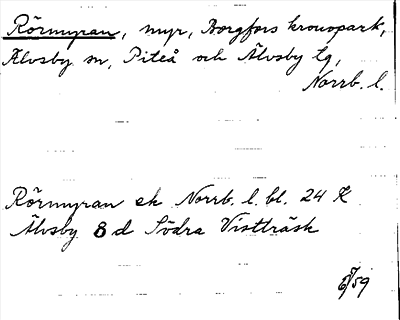 Rörmyran, myr, Borgfors kronopark,
Älvsby sn, Piteå och Älvsby tg,
Norrb. l.
Rörmyran ek Norrb. l. bl. 24 K
Älvsby 8 d Södra Vistträsk
/59